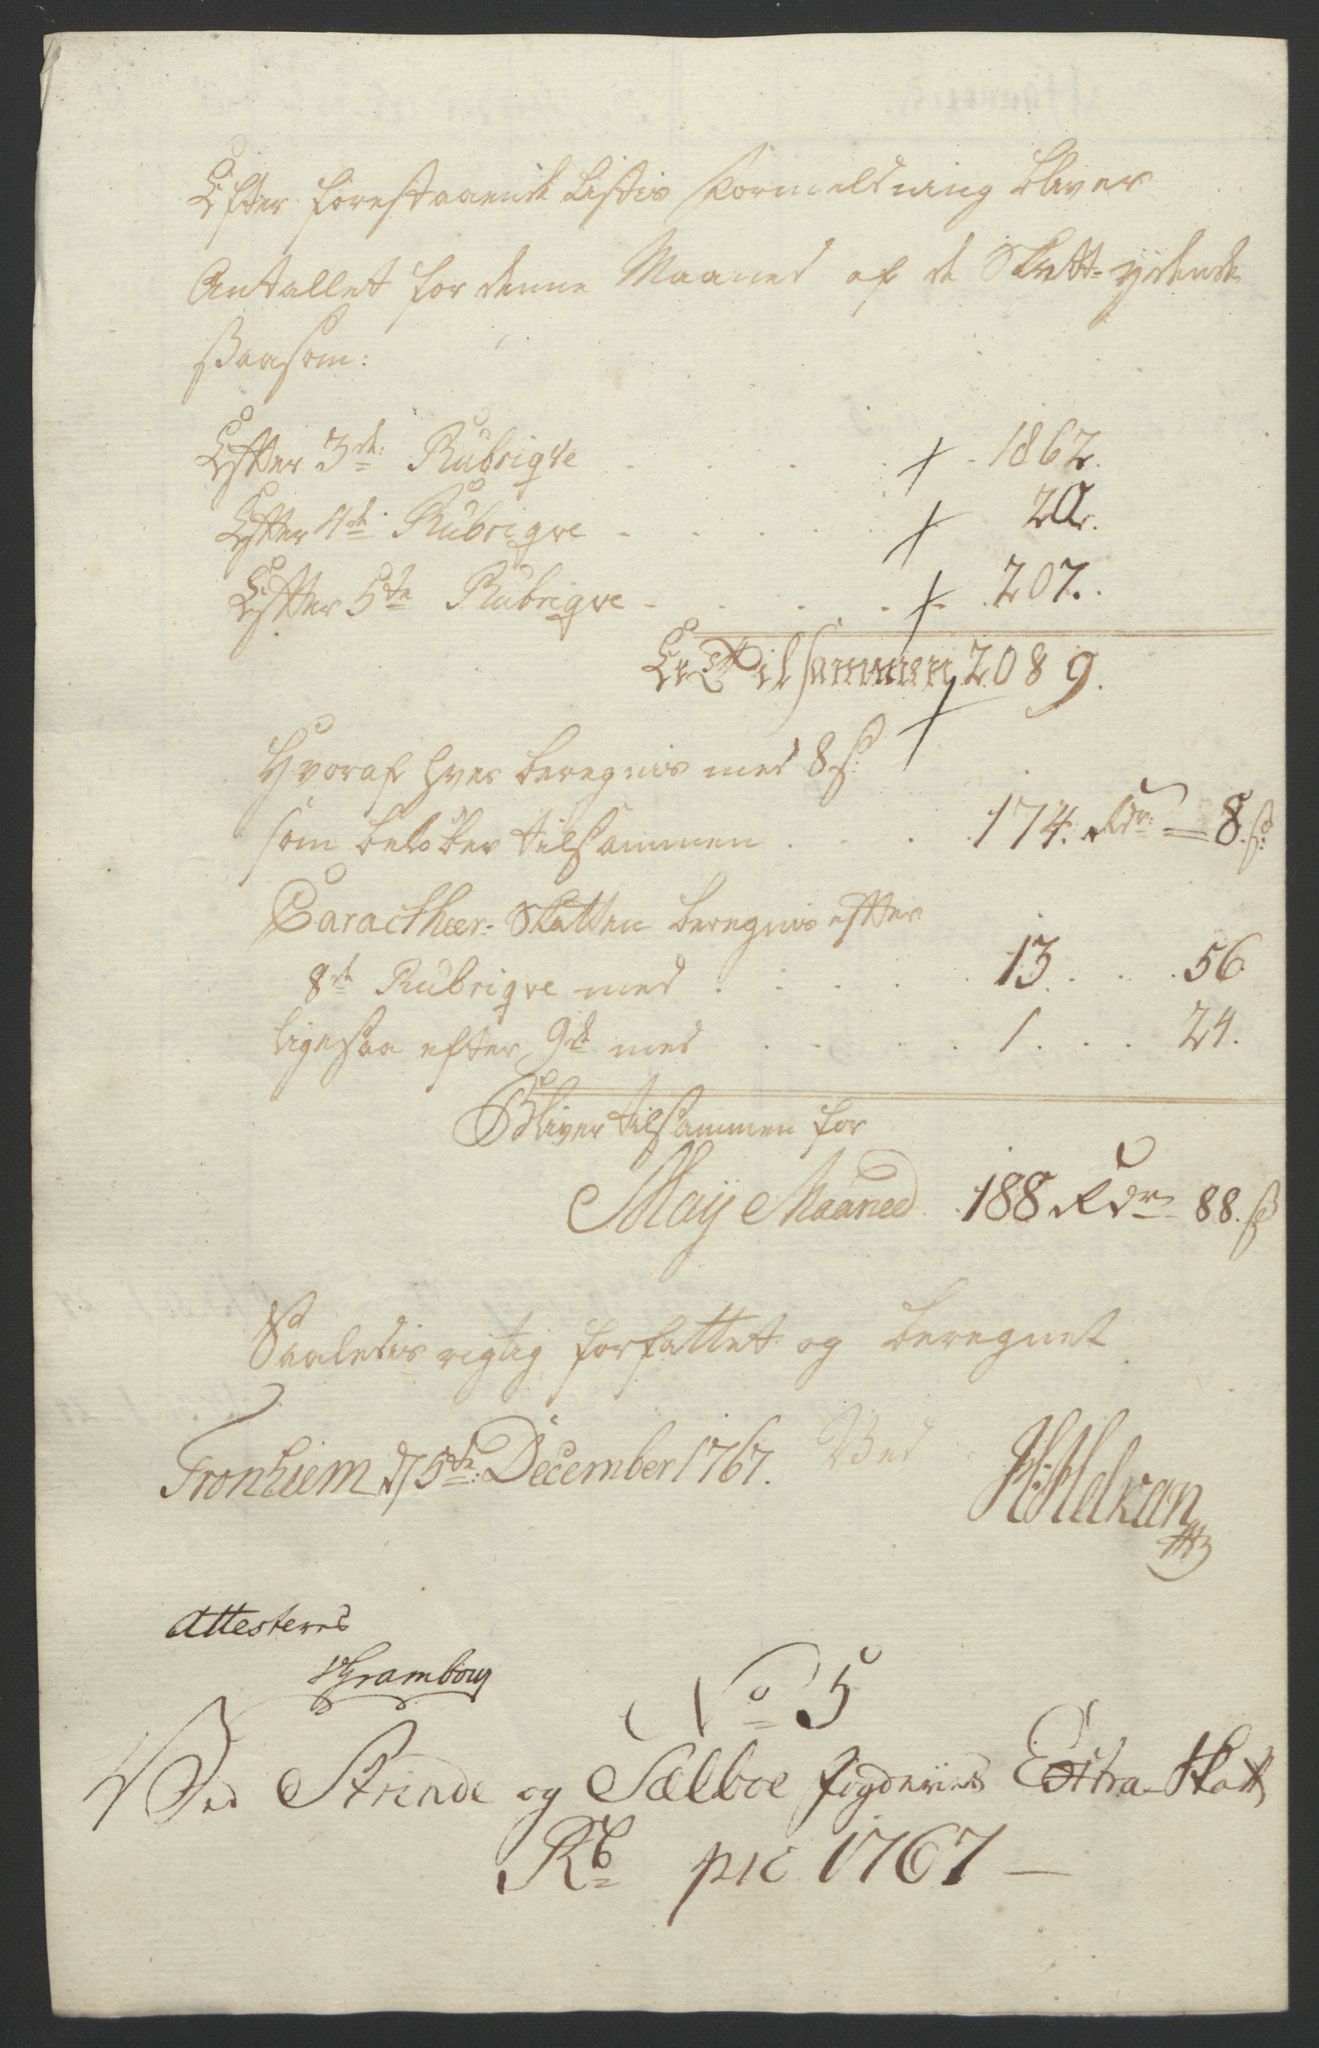 Efter forestaaende Listis Formeldning bliver
Antallet for denne Maaned af de Skatt-ydende
Saasom:
Efter 3de: Rubriqve . . . 1862.
Efter 4de Rubriqve . . . 20.
Efter 5te Rubriqve . . . 207.
Er Tilsammen 2089.
Hvoraf hver beregnis med 8 s:
som beløber tilsammen . . . 174. Rdr: — 8. s:
Caractheer-Skatten beregnis efter
8de Rubriqve med . . . 13. . . . 56.
ligesaa efter 9de med . . . 1. . . . 24.
Bliver tilsammen for
Maij Maaned 188 Rdr 88. s
Saaledis rigtig forfattet og beregnet
Tronhiem d 5te: December 1767. Ved
Attesteres
No 5
Ved Strinde og Sælboe fogderies Extra-Skatt
Rb pro 1767 —